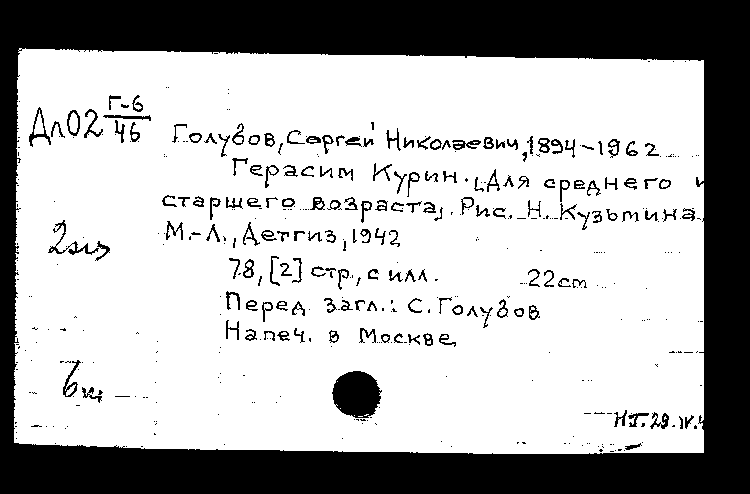 Дл02 Г-6/46
Голубов, Сергей Николаевич, 1894-1962
Герасим Курин. [Для среднего и
старшего возраста]. Рис. Н. Кузьмина
М.-Л., Детгиз, 1942
78, [2] стр., с илл. 22cm
Перед загл.: С. Голубов
Напеч. в Москве